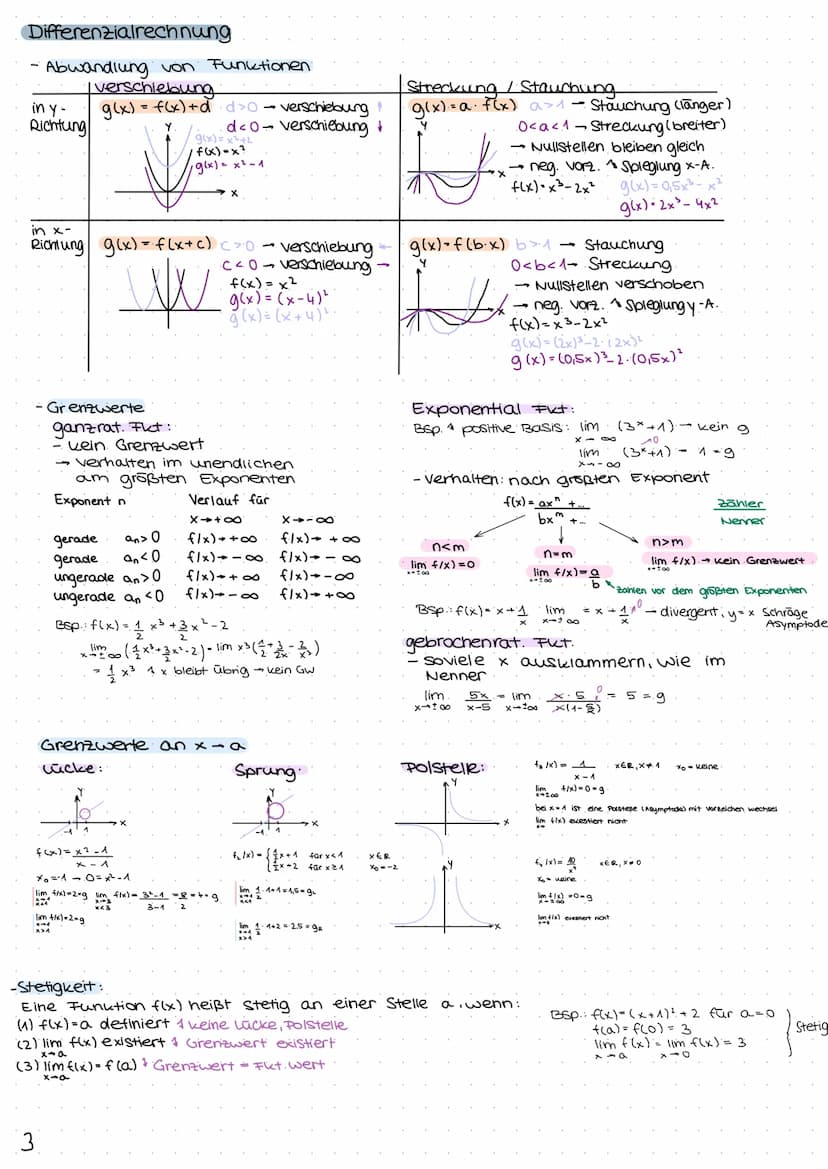 Differenzialrechnung
- Abwandlung von Funktionen
Verschiebung
Streckung / Stauchung
in y-
Richtung
g(x) = f(x)+d d>0 → Verschiebung ↑
d<0 → Verschiebung ↓
y
g(x)= x²+2
f(x)=x²
g(x)= x²-1
x
g(x)=a· f(x) a>1 → Stauchung (länger)
0<a<1 → Streckung (breiter)
→ Nullstellen bleiben gleich
→ neg. Vorz. Spieglung x-A.
y
x
f(x)=x³-2x²
g(x)=0,5x³- x²
g(x)=2x³- 4x²
in x-
Richtung
g(x)=f(x+c) c>0 → Verschiebung ←
c<0 → Verschiebung →
f(x) = x²
g(x) = (x-4)²
g(x)=(x+4)²
g(x)=f(b·x) b>1 → Stauchung
0<b<1→ Streckung
→ Nullstellen verschoben
→ neg. Vorz. Spieglung y-A.
y
x
f(x)=x³-2x²
g(x)=(2x)³-2·(2x)²
g(x)=(0,5x)³-2·(0,5x)²
- Grenzwerte
ganzrat. Fkt:
- kein Grenzwert
→ Verhalten im unendlichen
am größten Exponenten
Exponent n Verlauf für
x→+∞ x→-∞
gerade an>0 f(x)→+∞ f(x)→ +∞
gerade an<0 f(x)→-∞ f(x)→ -∞
ungerade an>0 f(x)→+∞ f(x)→-∞
ungerade an<0 f(x)→-∞ f(x)→+∞
Bsp.: f(x)= 1/2 x³ + 3/2 x²-2
lim x→±∞ (1/2 x³+3/2 x²-2)= lim x³(1/2+3/2x - 2/x³)
= 1/2 x³ 1 x bleibt übrig → kein GW
Exponential Fkt:
Bsp. positive Basis: lim x→∞ (3ˣ+1) → kein g
lim x→-∞ (3ˣ+1) = 1=g
→0
- Verhalten: nach größten Exponent
f(x)= axⁿ +... / bxᵐ +...
Zähler
Nenner
n<m
lim x→±∞ f(x)=0
n=m
lim x→±∞ f(x)= a/b
n>m
lim x→±∞ f(x) → kein Grenzwert
Zahlen vor dem größten Exponenten
Bsp.: f(x)= x+1/x lim x→±∞ = x+1/x →0 → divergent, y=x Schräge
Asymptode
gebrochenrat. Fkt.
- soviele x ausklammern, wie im
Nenner
lim x→±∞ 5x/x-5 = lim x→±∞ x·5/x(1-5/x) = 5 = g
Grenzwerte an x→a
Lücke:
Sprung:
Polstelle:
y
-1 1 x
f(x)= x²-1 / x-1
x₀=-1 → 0=x²-1
lim x→1 f(x)=2=g lim x→3 x<3 f(x)= 3²-1/3-1 = 8/2 = 4=g
lim f(x)=2=g
x→1
x>1
y
-1 1 x
f₂(x)= { 1/2x+1 für x<1 x∈R
1/2x+2 für x≥1 x₀=-2
lim x→1 x<1 1/2·1+1=1,5=g₁
lim x→1 x>1 1/2·1+2=2,5=g₂
y
x
f₃(x)= 1/x-1 x∈R, x≠1 x₀=keine
lim x→±∞ f(x)=0=g
bei x=1 ist eine Polstelle (Asymptode) mit Vorzeichen wechsel
lim f(x) existiert nicht
y
x
x∈R, x≠0
x₀=keine
lim x→±∞ f(x)=0=g
lim f(x) existiert nicht
- Stetigkeit:
Eine Funktion f(x) heißt stetig an einer Stelle a, wenn:
(1) f(x)=a definiert keine Lücke, Polstelle
(2) lim x→a f(x) existiert Grenzwert existiert
(3) lim x→a f(x)= f(a) Grenzwert = Fkt. wert
Bsp.: f(x)=(x+1)²+2 für a=0
f(a)=f(0)=3
lim x→a f(x)= lim x→0 f(x)=3
Stetig
3